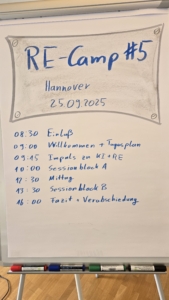 RE-Camp #5
Hannover
25.09.2025
08:30 Einlaß
09:00 Willkommen + Tagesplan
09:15 Impuls zu KI+RE
10:00 Sessionblock A
12:30 Mittag
13:30 Sessionblock B
16:00 Fazit + Verabschiedung